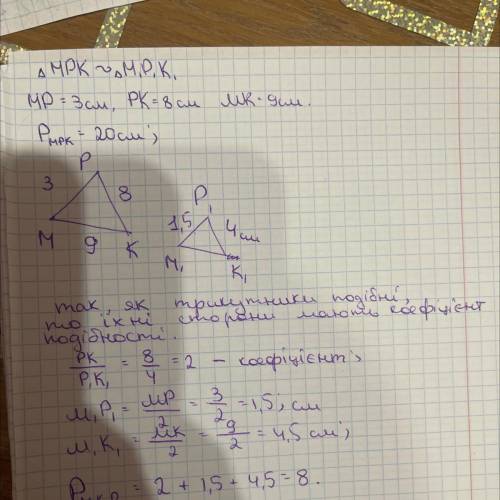 △MPK ~ △M₁P₁K₁
MP = 3 см, PK = 8 см MK = 9 см.
P_MPK = 20 см;
P
3
8
M
9
K
P₁
1,5
4 см
M₁
K₁
так, як трикутники подібні,
то їхні сторони мають коефіцієнт
подібності.
PK/P₁K₁ = 8/4 = 2 – соефіцієнт;
M₁P₁ = MP/2 = 3/2 = 1,5; см
M₁K₁ = MK/2 = 9/2 = 4,5 см;
= 2 + 1,5 + 4,5 = 8.